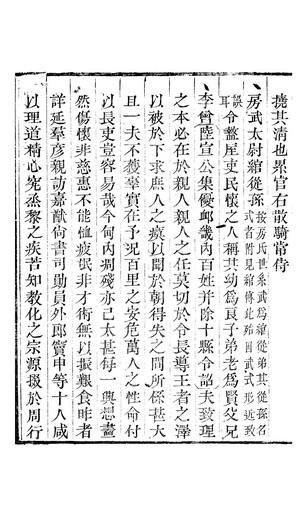 撓其清也累官右散騎常侍
房武太尉綰從孫按房氏世系武為綰從弟其從孫名式附見綰傳此殆因武式形近致
誤耳令盩厔吏民懷之人稱其幼為良子弟老為賢父兄
李曾陸宣公集優卹畿內百姓并除十縣令詔夫致理
之本必在於親人親人之任莫切於令長導王者之澤
以被於下求庶人之瘼以聞於朝得失之間所係甚大
且一夫不獲辜實在予況百里之安危萬人之性命付
以長吏豈容易哉今甸內凋殘亦已太甚每一興想盡
然傷懷非慈惠不能恤疲氓非才術無以振艱食昨者
詳延羣彥親訪嘉猷尚書司勳員外郎竇申等十人咸
以理道精心究烝黎之疾苦知教化之宗源掇於周行